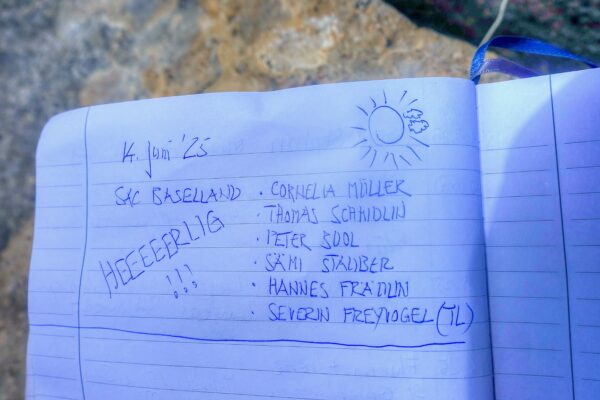 14. Juni '25
SAC BASELLAND
HEEEEERLIG
!!!
• CORNELIA MÜLLER
• THOMAS SCHMIDLIN
• PETER
• SÄMI STAUBER
• HANNES
• SEVERIN FREYVOGEL (TL)